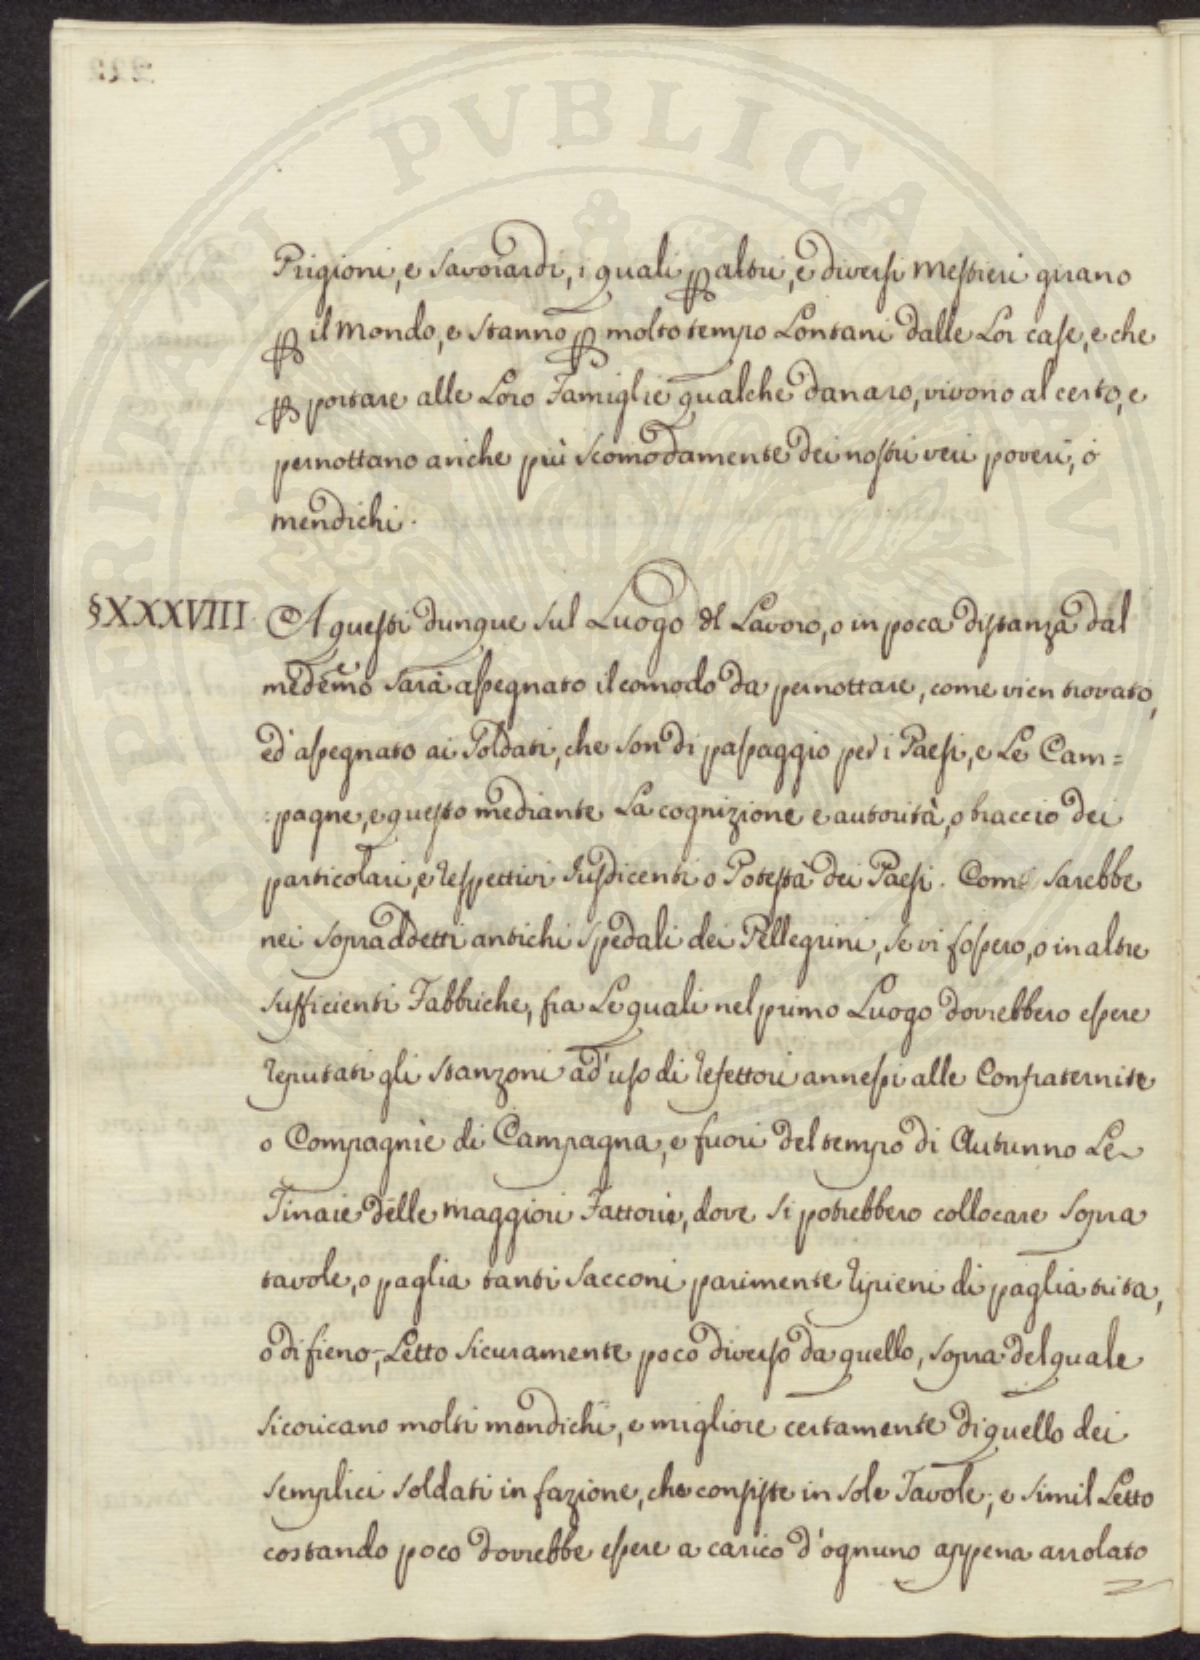 PROSPERITATI PUBLICAE AUGENDAE
Prigioni, e Savoiardi, i quali ꝑ altri, e diversi mestieri girano
ꝑ il mondo, e stanno ꝑ molto tempo Lontani dalle Lor case, e che
ꝑ portare alle Loro Famiglie qualche danaro, vivono al certo, e
pernottano anche più scomodamente dei nostri veri poveri, ò
mendichi.
§XXXVIII A questi dunque sul Luogo del Lavoro, o in poca distanza dal
medemo sarà assegnato il comodo da pernottare, come vien trovato,
ed' assegnato ai Soldati, che son di passaggio per i Paesi, e Le Cam=
:pagne, e questo mediante La cognizione e autorità, o braccio dei
particolari, e respettivi Iusdicenti o Potestà dei Paesi. Come sarebbe
nei sopraddetti antichi spedali dei Pellegrini, se vi fossero, o in altre
sufficienti Fabbriche, fra Le quali nel primo Luogo dovrebbero essere
reputati gli stanzoni ad' uso di refettori annessi alle Confraternite
o Compagnie di Campagna, e fuori del tempo di Autunno Le
Tinaie delle maggiori Fattorie, dove si potrebbero collocare sopra
tavole, o paglia tanti sacconi parimente ripieni di paglia trita,
o di fieno, Letto sicuramente poco diverso da quello, sopra del quale
si coricano molti mendichi, e migliore certamente di quello dei
semplici soldati in fazione, che consiste in sole Tavole; e simil Letto
costando poco dovrebbe essere a carico d'ognuno appena arrolato